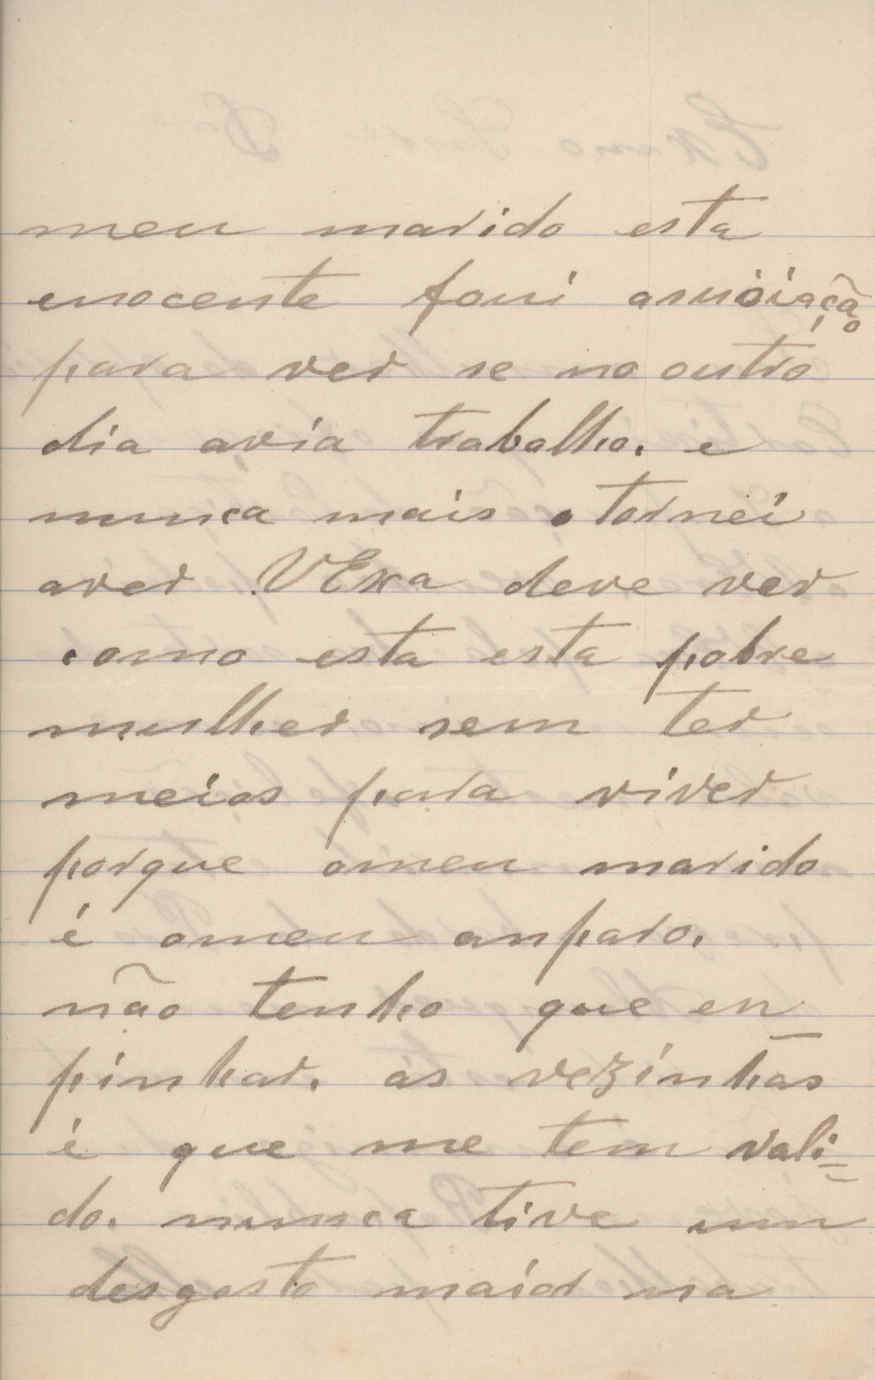 meu marido esta
enocente foui asuóiação
para ver se no outro
dia avia trabalho. e
nunca mais o tornei
aver VExa deve ver
como esta esta pobre
mulher sem ter
meios para viver
porque omeu marido
é omeu anparo.
não tenho que en
pinhar. as vezinhas
é que me tem vali=
do. nunca tive um
desgosto maior na